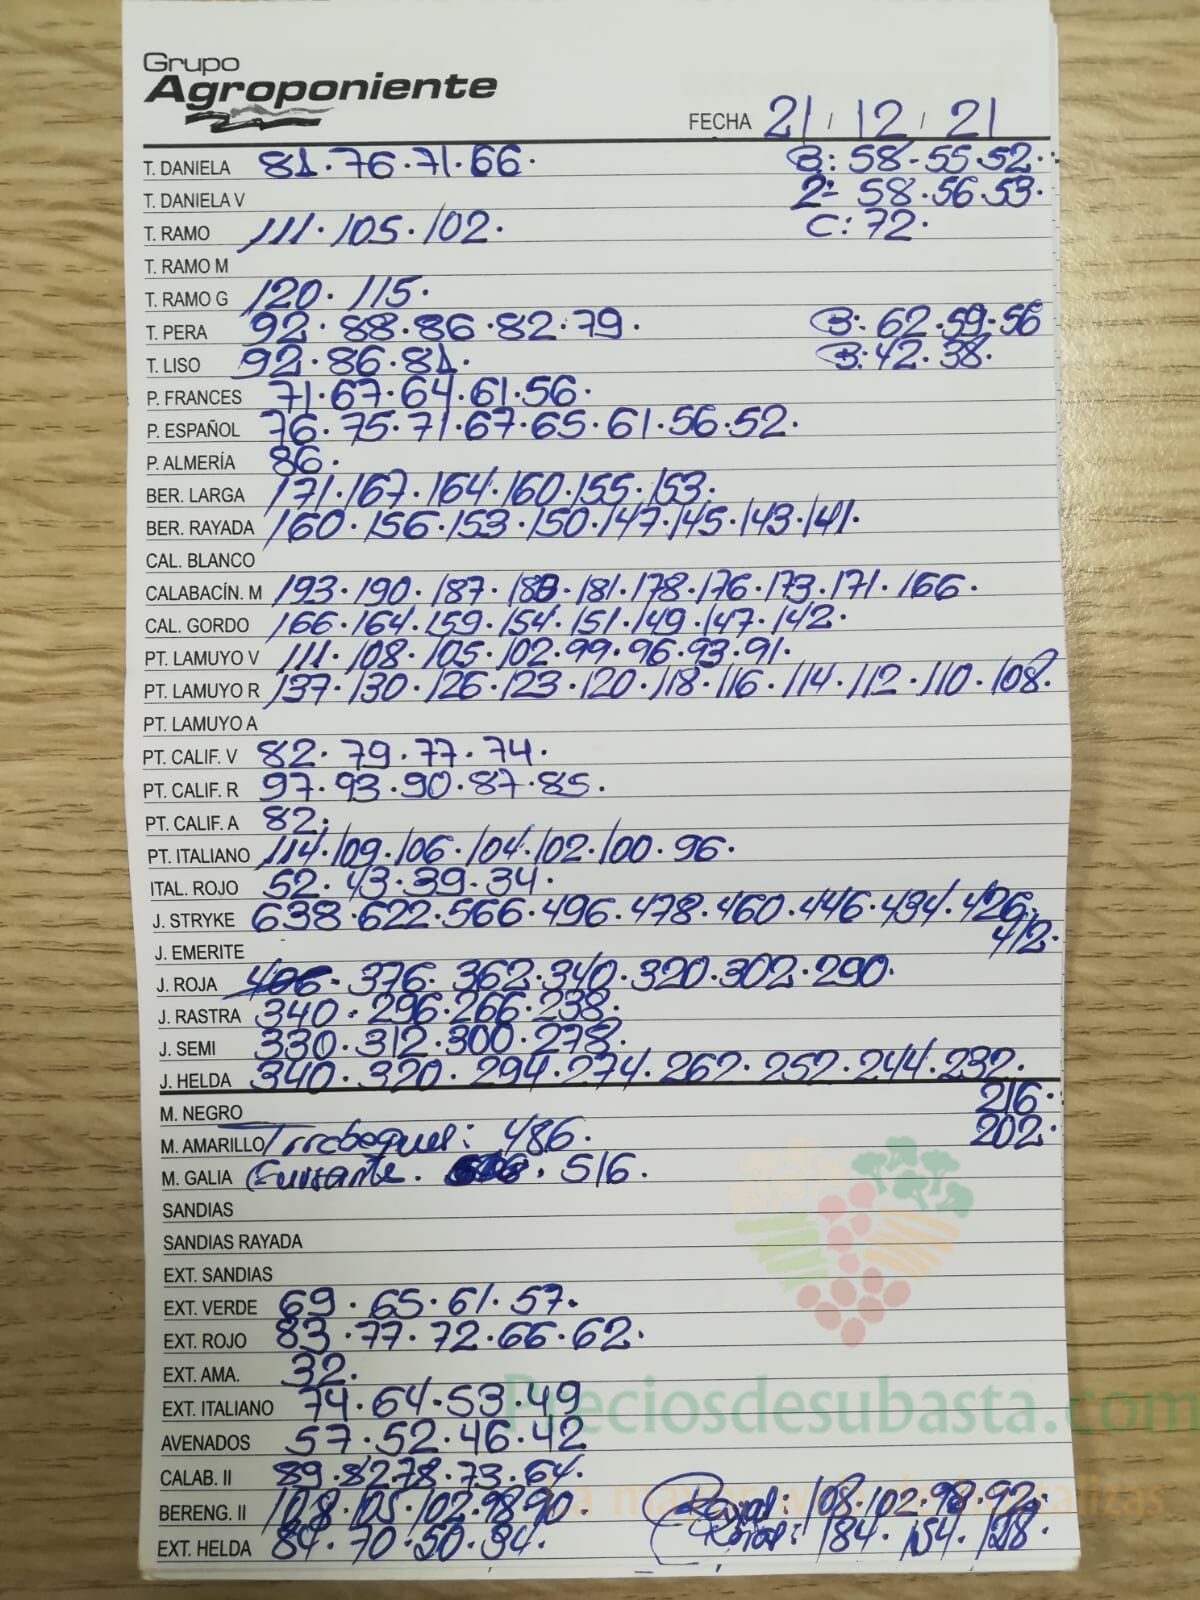 Grupo
Agroponiente
FECHA 21 / 12 / 21
T. DANIELA 81·76·71·66· B: 58-55·52·
T. DANIELA V 2ª 58·56·53·
T. RAMO 111·105·102· C: 72·
T. RAMO M
T. RAMO G 120·115·
T. PERA 92·88·86·82·79· B: 62·59·56
T. LISO 92·86·81· B: 42·38·
P. FRANCES 71·67·64·61·56·
P. ESPAÑOL 76·75·71·67·65·61·56·52·
P. ALMERÍA 86·
BER. LARGA 171·167·164·160·155·153·
BER. RAYADA 160·156·153·150·147·145·143·141·
CAL. BLANCO
CALABACÍN. M 193·190·187·183·181·178·176·173·171·166·
CAL. GORDO 166·164·159·154·151·149·147·142·
PT. LAMUYO V 111·108·105·102·99·96·93·91·
PT. LAMUYO R 137·130·126·123·120·118·116·114·112·110·108·
PT. LAMUYO A
PT. CALIF. V 82·79·77·74·
PT. CALIF. R 97·93·90·87·85·
PT. CALIF. A 82·
PT. ITALIANO 114·109·106·104·102·100·96·
ITAL. ROJO 52·43·39·34·
J. STRYKE 638·622·566·496·478·460·446·434·426·
J. EMERITE 412·
J. ROJA 376·362·340·320·302·290·
J. RASTRA 340·296·266·238·
J. SEMI 330·312·300·278·
J. HELDA 340·320·294·274·262·252·244·232·
M. NEGRO 216·
M. AMARILLO : 486· 202·
M. GALIA Guisante· 516·
SANDIAS
SANDIAS RAYADA
EXT. SANDIAS
EXT. VERDE 69·65·61·57·
EXT. ROJO 83·77·72·66·62·
EXT. AMA. 32·
EXT. ITALIANO 74·64·53·49
Preciosdesubasta.com
AVENADOS 57·52·46·42
CALAB. II 89·82·78·73·64·
BERENG. II 108·105·102·98·90· : 108·102·98·92·
EXT. HELDA 84·70·50·34· : 184·154·128·